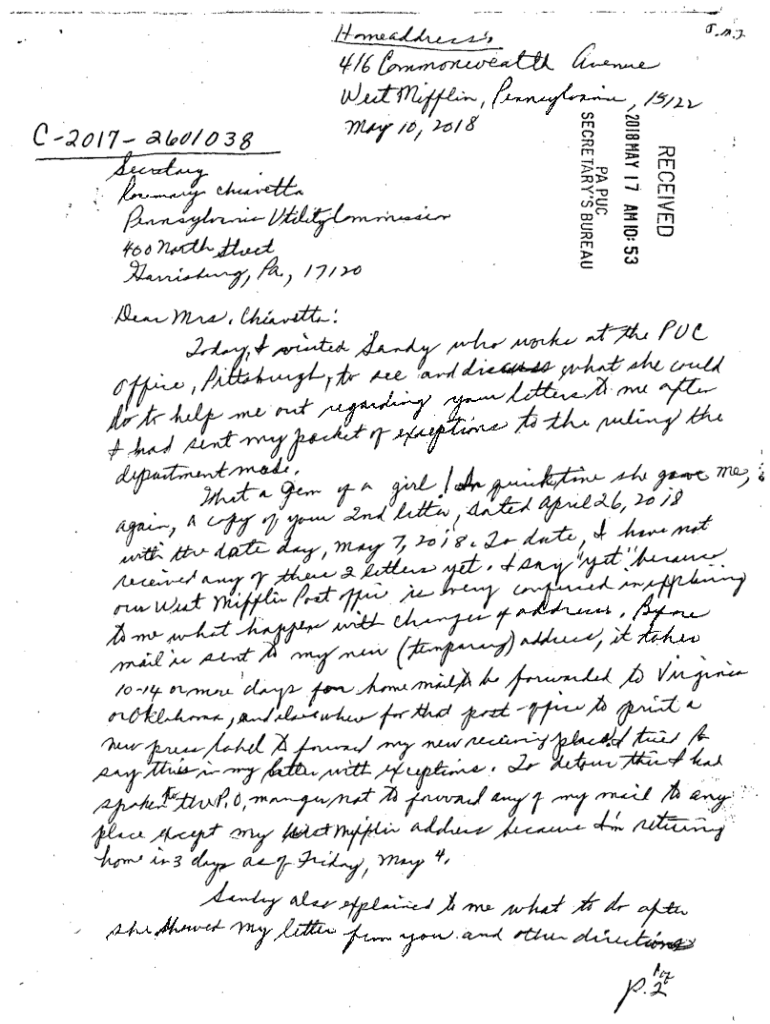 J.M.J.
Home address:
416 Commonwealth Avenue
West Mifflin, Pennsylvania, 15122
May 10, 2018
RECEIVED
2018 MAY 17 AM 10:53
PA PUC
SECRETARY'S BUREAU
C-2017-2601038
Secretary
Rosemary Chiavetta
Pennsylvania Utility Commission
400 North Street
Harrisburg, Pa., 17120
Dear Mrs. Chiavetta:
Today, I visited Sandy who works at the PUC
office, Pittsburgh, to see and discuss what she could
do to help me out regarding your letters to me after
I had sent my packet of exceptions to the ruling the
department made.
What a Gem of a girl! In quick time she gave me,
again, a copy of your 2nd letter, dated April 26, 2018
with the date day, May 7, 2018. To date, I have not
received any of these 2 letters yet. I say "yet" because
our West Mifflin Post offic is very confused in explaining
to me what happen with changes of address. Before
mail is sent to my new (temporary) address, it takes
10-14 or more days for home mail to be forwarded to Virginia
or Oklahoma, and elsewhere for that post-office to print a
new press label to forward my new receiving place. I tried to
say this in my letter with exceptions. To detour this I had
spoken to the P.O. manger not to forward any of my mail to any
place except my West Mifflin address because I'm returning
home in 3 days as of Friday, May 4.
Sandy also explained to me what to do after
she showed my letter from you and other directions
p. 1 of 2